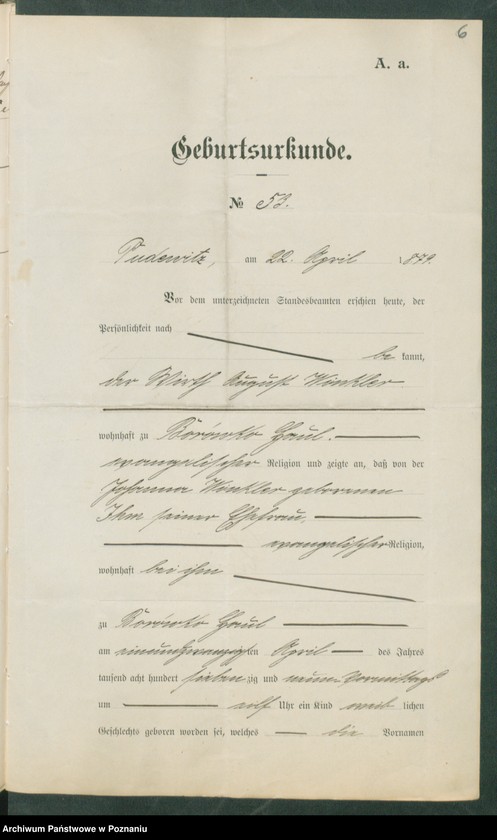 6
A. a.
Geburtsurkunde.
№ 53.
Pudewitz, am 22. April 1879.
Vor dem unterzeichneten Standesbeamten erschien heute, der
Persönlichkeit nach
be kannt,
der Wirth August Winkler
wohnhaft zu Borówko Haul.
evangelischer Religion und zeigte an, daß von der
Johanna Winkler geborenen
Ihm seiner Ehefrau,
evangelischer Religion,
wohnhaft bei ihm
zu Borówko Haul
am einundzwanzigsten April des Jahres
tausend acht hundert siebenzig und neun Vormittags
um elf Uhr ein Kind weib lichen
Geschlechts geboren worden sei, welches die Vornamen
Archiwum Państwowe w Poznaniu